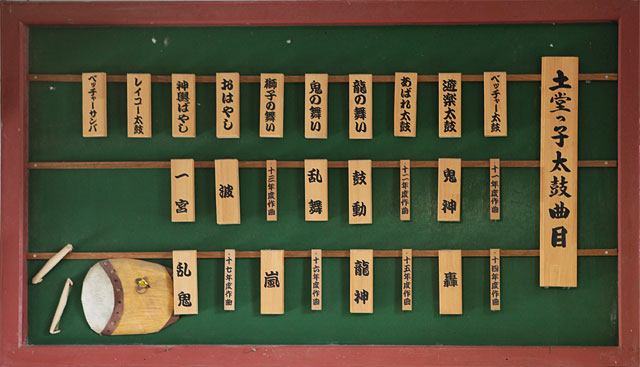 土堂っ子太鼓曲目
ベッチャー太鼓
遊楽太鼓
あばれ太鼓
龍の舞い
鬼の舞い
獅子の舞い
おはやし
神輿ばやし
レイコー太鼓
ベッチャーサンバ
十一年度作曲
鬼神
十二年度作曲
鼓動
乱舞
十三年度作曲
波
一宮
十四年度作曲
轟
十五年度作曲
龍神
十六年度作曲
嵐
十七年度作曲
乱鬼